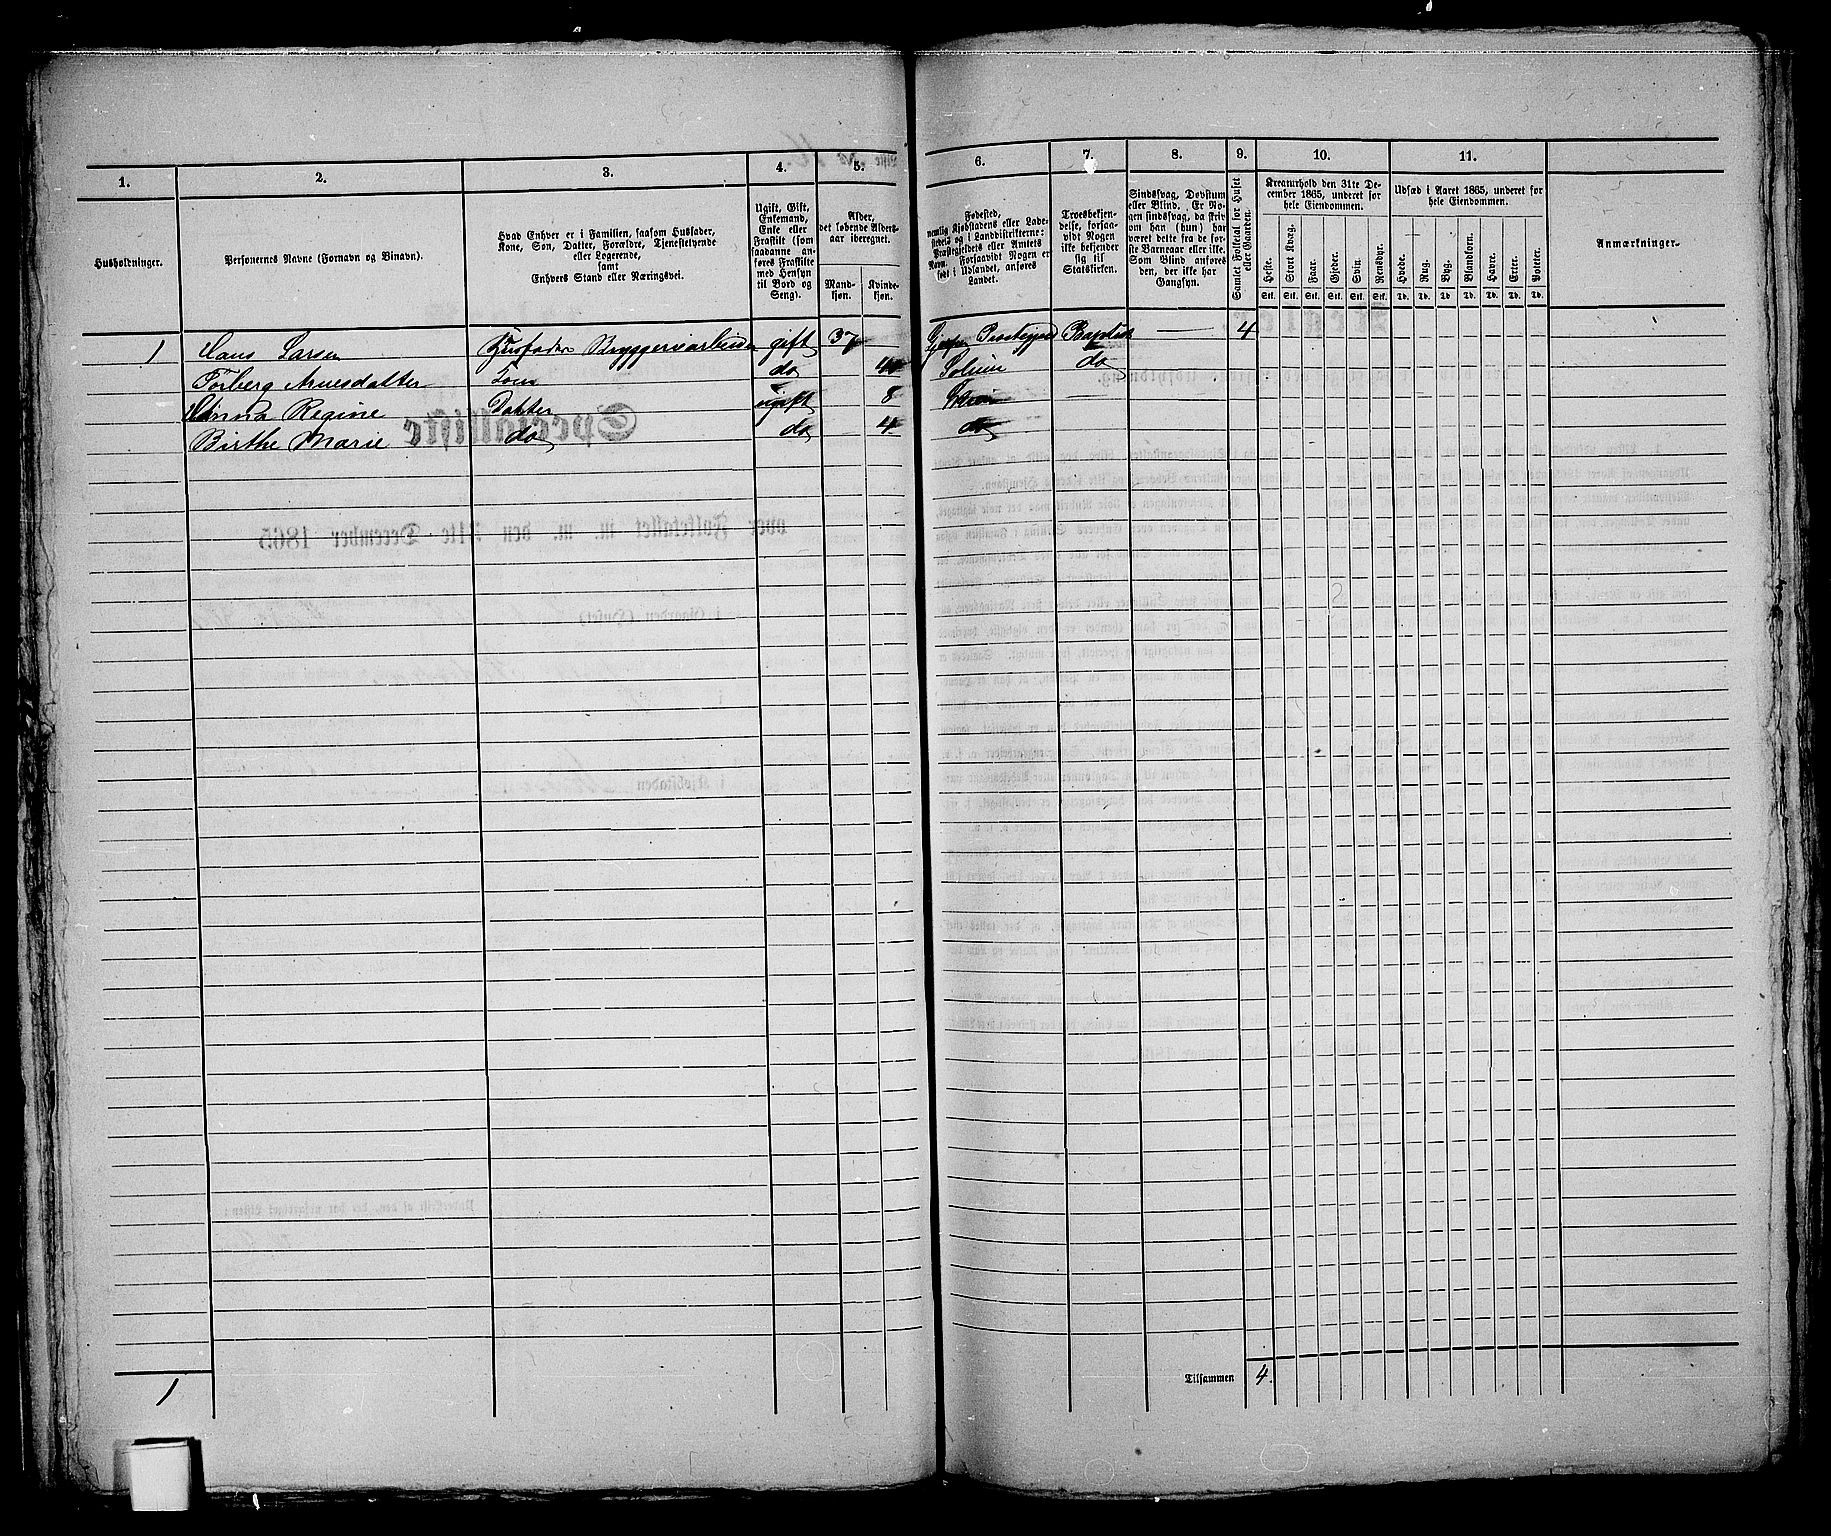 1.
2.
3.
4.
5.
6.
7.
8.
9.
10.
11.
Husholdninger.
Personernes Navne (Fornavn og Binavn).
Hvad Enhver er i Familien, saasom Husfader,
Kone, Søn, Datter, Forældre, Tjenestetyende
eller Logerende,
samt
Enhvers Stand eller Næringsvei.
Ugift, Gift,
Enkemand,
Enke eller
Fraskilt (som
saadanne an-
føres Fraskilte
med Hensyn
til Bord og
Seng).
Alder,
det løbende Alders-
aar iberegnet.
Mand-
kjøn.
Kvinde-
kjøn.
Fødested,
nemlig Kjøbstadens eller Lade-
stedets og i Landdistrikterne:
Præstegjeldets eller Amtets
Navn. Forsaavidt Nogen er
født i Udlandet, anføres
Landet.
Troesbekjen-
delse, forsaa-
vidt Nogen
ikke bekjender
sig til
Statskirken.
Sindssvag, Døvstum
eller Blind. Er No-
gen sindssvag, da skriv
om han (hun) har
været dette fra de før-
ste Barneaar eller ikke.
Som Blind anføres
den, der ikke har
Gangsyn.
Samlet Folketal for Huset
eller Gaarden.
Kreaturhold den 31te De-
cember 1865, underet for
hele Eiendommen.
Heste.
Stort Kvæg.
Faar.
Gjeder.
Svin.
Rensdyr.
Stk. Stk. Stk. Stk. Stk. Stk.
Udsæd i Aaret 1865, underet for
hele Eiendommen.
Hvede.
Rug.
Byg.
Blandkorn.
Havre.
Erter.
Poteter.
Td. Td. Td. Td. Td. Td. Td.
Anmærkninger.
1 Hans Larsen Husfader Bryggeriarbeider gift 37 Præstegjed Baptist — 4
Torberg Arnesdatter do Solum do
Hanna Regine Datter ugift 8 Skien
Birthe Marie do do 4 do
1
Tilsammen 4.